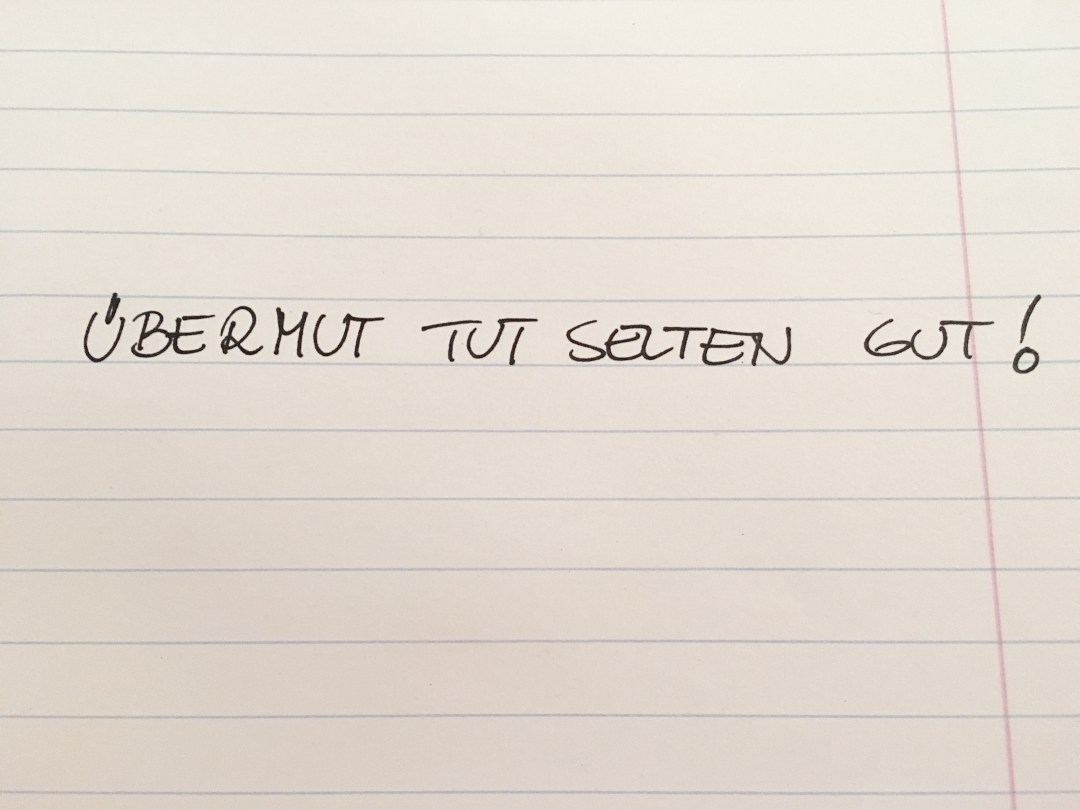 ÜBERMUT TUT SELTEN GUT!